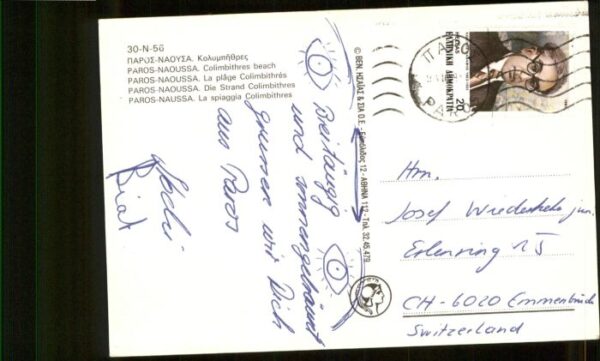 30-N-56
ΠΑΡΟΣ-ΝΑΟΥΣΑ. Κολυμπήθρες
PAROS-NAOUSSA. Colimbithres beach
PAROS-NAOUSSA. La plâge Colimbithrés
PAROS-NAOUSSA. Die Strand Colimbithres
PAROS-NAUSSA. La spiaggia Colimbithres
Breitäugig
und sonnengebräunt
grüssen wir Dich
aus Paros
Beat
© ΒΕΝ. ΗΣΑΪΑΣ & ΣΙΑ Ο.Ε. 12 - ΑΘΗΝΑ 112 - Τηλ. 32 45 479
ΠΑΡΟΣ
PAROS
ΕΛΛΗΝΙΚΗ ΔΗΜΟΚΡΑΤΙΑ
HELLAS
20
Hrn.
Josef Wiederkehr jun.
Erlenring 15
CH-6020 Emmenbrücke
Switzerland